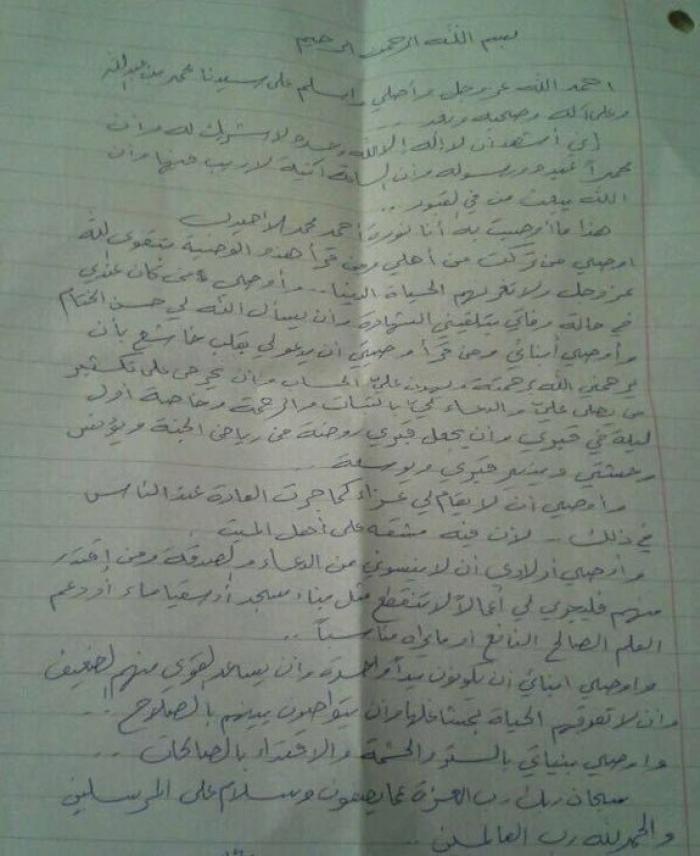 بسم الله الرحمن الرحيم
احمد الله عز وجل وأصلي وأسلم على سيدنا محمد بن عبدالله
وعلى آله وصحبه وبعد ...
إني أستشهد أن لا إله إلا الله وحده لا شريك له وأن
محمداً عبده ورسوله وأن الساعة آتية لا ريب فيها وأن
الله يبعث من في القبور ..
هذا ما أوصيت به أنا نورة أحمد محمد
اوصي من تركت من أهلي ومن قرأ هذه الوصية بتقوى الله
عز وجل ولا تغرنهم الحياة الدنيا .. وأوصي من كان عندي
في حالة وفاتي بتلقيني الشهادة وأن يسأل الله لي حسن الختام
وأوصي أبنائي ومن قرأ وصيتي أن يدعو لي بقلب خاشع بأن
يرحمني الله برحمته ويهون عليّ الحساب وأن يحرص على تكثير
من يصلي عليّ والدعاء لي بالثبات والرحمة وخاصة أول
ليلة في قبري وأن يجعل قبري روضة من رياض الجنة ويؤنس
وحشتي وينير قبري ويوسعه ..
وأوصي أن لا يقام لي عزاء كما جرت العادة عند الناس
في ذلك .. لأن فيه مشقه على أهل الميت .
وأوصي أولادي أن لا ينسوني من الدعاء والصدقة ومن إقتدر
منهم فليجري لي أعمالاً لا تنقطع مثل بناء مسجد أو سقيا ماء أو دعم
العلم الصالح النافع أو مايراه مناسباً ..
واوصي ابنائي أن يكونون يداً واحدة وأن يساعد القوي منهم الضعيف
وأن لا تفرقهم الحياة بمشاغلها وأن يتواصون بينهم بالصلاح ..
واوصي بنياتي بالستر والحشمة والاقتداء بالصالحات ..
سبحان ربك رب العزة عما يصفون وسلام على المرسلين
والحمد لله رب العالمين ..